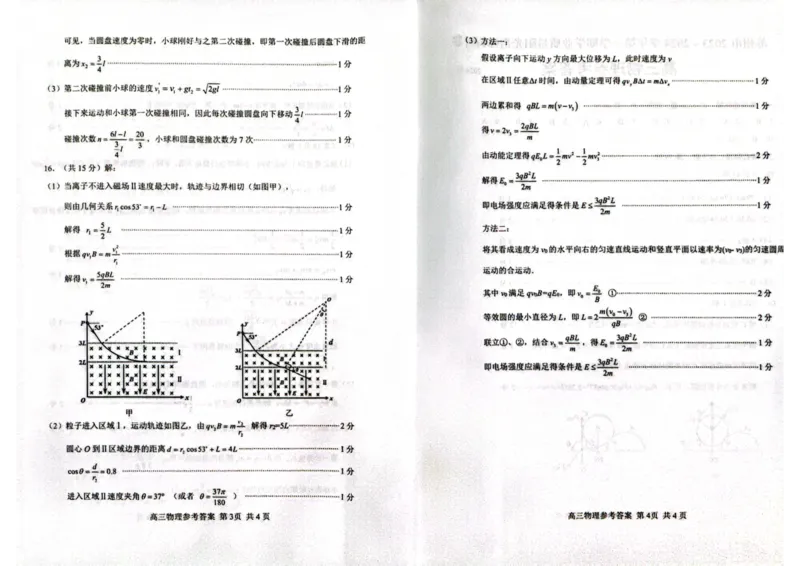 可见，当圆盘速度为零时，小球刚好与之第二次碰撞，即第一次碰撞后圆盘下滑的距
离为x₂=3/4 l ……1分
（3）第二次碰撞前小球的速度v₁'=v₁+gt₂=√2gl ……1分
接下来运动和小球第一次碰撞相同，因此每次碰撞圆盘向下移动3/4 l ……1分
碰撞次数n=(6l-l)/(3/4 l)=20/3，小球和圆盘碰撞次数为7次……1分
16.（共15分）解：
（1）当离子不进入磁场Ⅱ速度最大时，轨迹与边界相切（如图甲），
则由几何关系r₁cos53°=r₁-L ……1分
解得 r₁=5/2 L ……1分
根据qv₁B=m v₁²/r₁ ……1分
解得v₁=5qBL/2m ……1分
y
P
53°
3L
Ⅰ
2L
B
Ⅱ
O
x
甲
O
y
P
3L
2L
d
Ⅰ
Ⅱ
B
O
x
乙
（2）粒子进入区域Ⅰ，运动轨迹如图乙，由qv₂B=m v₂²/r₂ 解得r₂=5L……2分
圆心O到Ⅱ区域边界的距离d=r₂cos53°+L=4L……1分
cosθ=d/r₂=0.8 ……1分
进入区域Ⅱ速度夹角θ=37°（或者 θ=37π/180 ）……1分
高三物理参考答案 第3页 共4页
（3）方法一：
假设离子向下运动y方向最大位移为L，此时速度为v
在区域Ⅱ任意Δt时间，由动量定理可得qvᵧBΔt=mΔvₓ……1分
两边累和得 qBL=m(v-v₃) ……1分
得v=2v₃=2qBL/m
由动能定理得qE₀L=1/2 mv²-1/2 mv₃²……2分
解得E₀=3qB²L/2m ……1分
即电场强度应满足得条件是E≤3qB²L/2m ……1分
方法二：
将其看成速度为v₀的水平向右的匀速直线运动和竖直平面以速率为(v₀- v₃)的匀速圆周
运动的合运动．
其中v₀满足qv₀B=qE₀，即v₀=E₀/B ①……2分
等效圆的最小直径为L，即L=2 m(v₀-v₃)/qB ② ……2分
联立①、②，结合v₃=qBL/m，得E₀=3qB²L/2m ……1分
即电场强度应满足得条件是E≤3qB²L/2m ……1分
高三物理参考答案 第4页 共4页